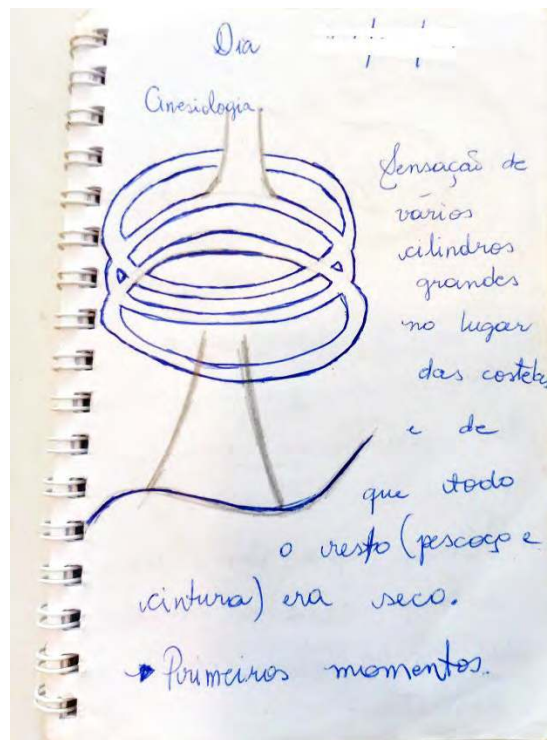 Dia / /
Cinesiologia.
Sensação de
vários
cilindros
grandes
no lugar
das costelas
e de
que todo
o resto (pescoço e
cintura) era seco.
→ Primeiros momentos.